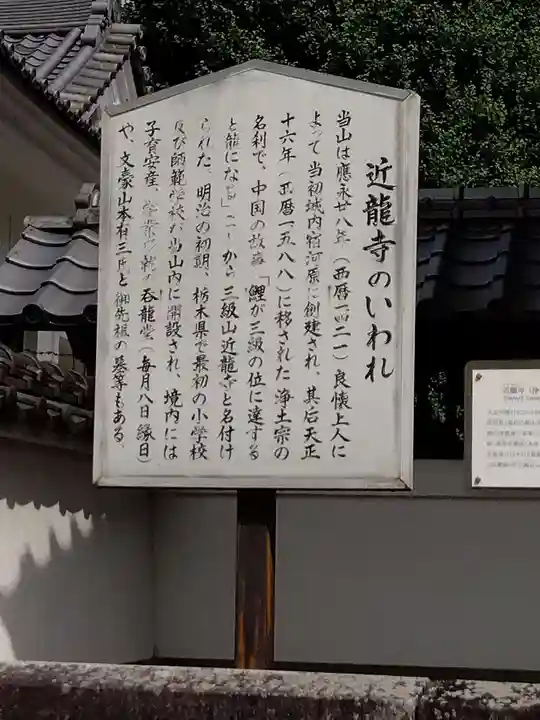 近龍寺のいわれ
当山は應永廿八年(西暦一四二一)良懐上人に
よって当初城内宿河原に創建され、其后天正
十六年(西暦一五八八)に移された浄土宗の
名刹で、中国の故事「鯉が三級の位に達する
と龍になる」ことから三級山近龍寺と名付け
られた。明治の初期、栃木県で最初の小学校
及び師範学校が当山内に開設され、境内には
子育安産、呑龍堂(毎月八日縁日)
や、文豪山本有三氏と御先祖の墓等もある、